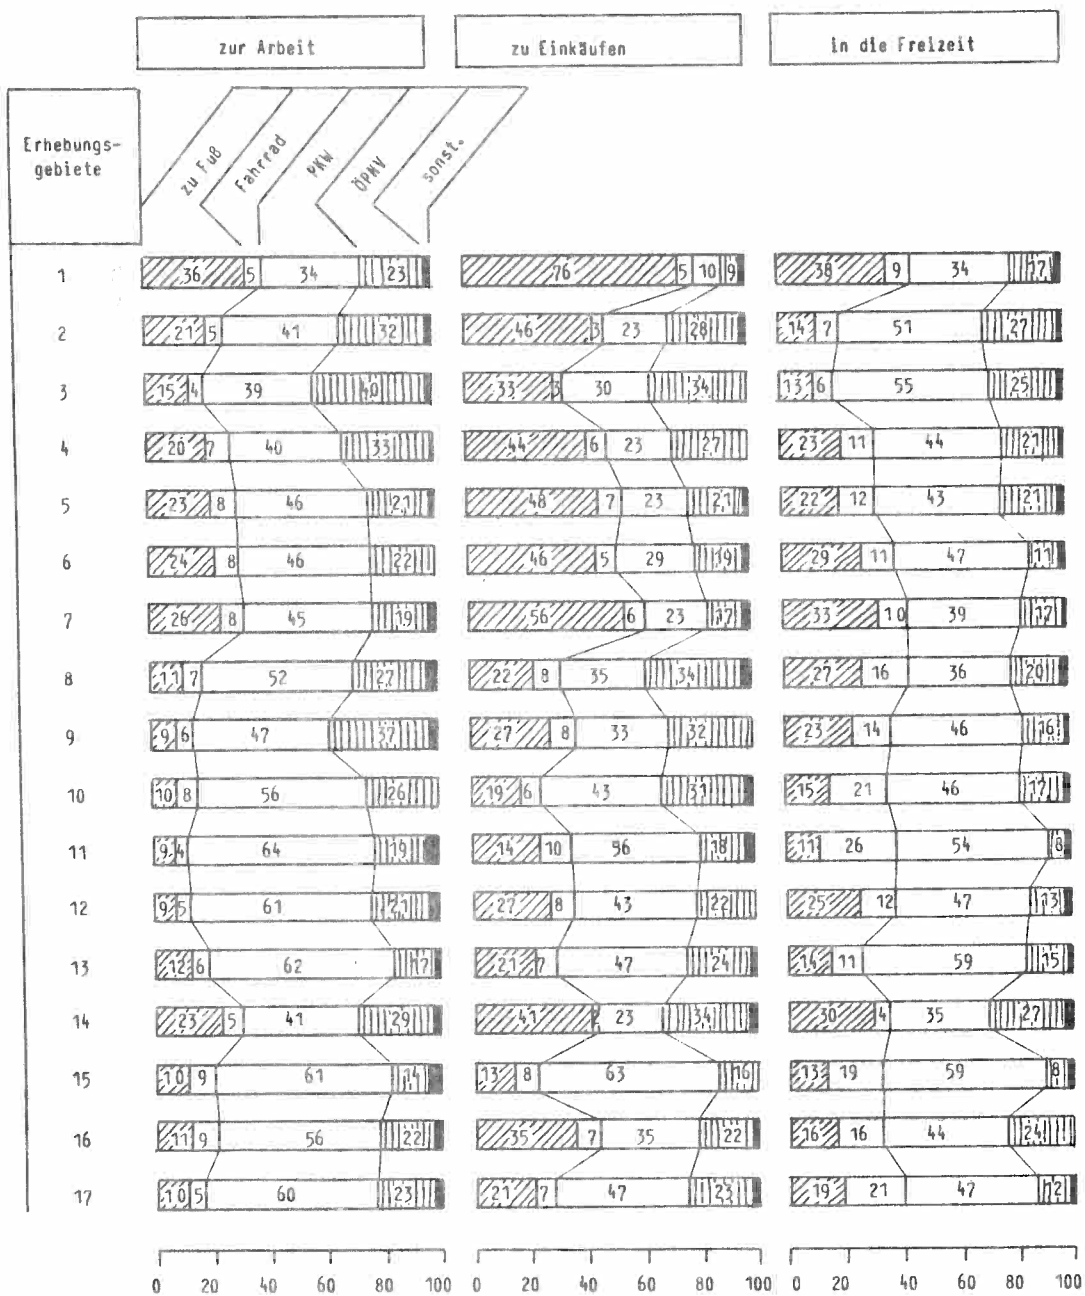 zur Arbeit zu Einkäufen in die Freizeit
Erhebungs-
gebiete
zu Fuß Fahrrad PKW ÖPNV sonst.
1 36 5 34 23 76 5 10 9 38 9 34 17
2 21 5 41 32 46 3 23 28 14 7 51 27
3 15 4 39 40 33 3 30 34 13 6 55 25
4 20 7 40 33 44 6 23 27 23 11 44 21
5 23 8 46 21 48 7 23 21 22 12 43 21
6 24 8 46 22 46 5 29 19 29 11 47 11
7 26 8 45 19 56 6 23 17 33 10 39 17
8 11 7 52 27 22 8 35 34 27 16 36 20
9 9 6 47 37 27 8 33 32 23 14 46 16
10 10 8 56 26 19 6 43 31 15 21 46 17
11 9 4 64 19 14 10 96 18 11 26 54 8
12 9 5 61 21 27 8 43 22 25 12 47 13
13 12 6 62 17 21 7 47 24 14 11 59 15
14 23 5 41 29 41 2 23 34 30 4 35 27
15 10 9 61 14 13 8 63 16 13 19 59 8
16 11 9 56 22 35 7 35 22 16 16 44 24
17 10 5 60 23 21 7 47 23 19 21 47 12
0 20 40 60 80 100 0 20 40 60 80 100 0 20 40 60 80 100